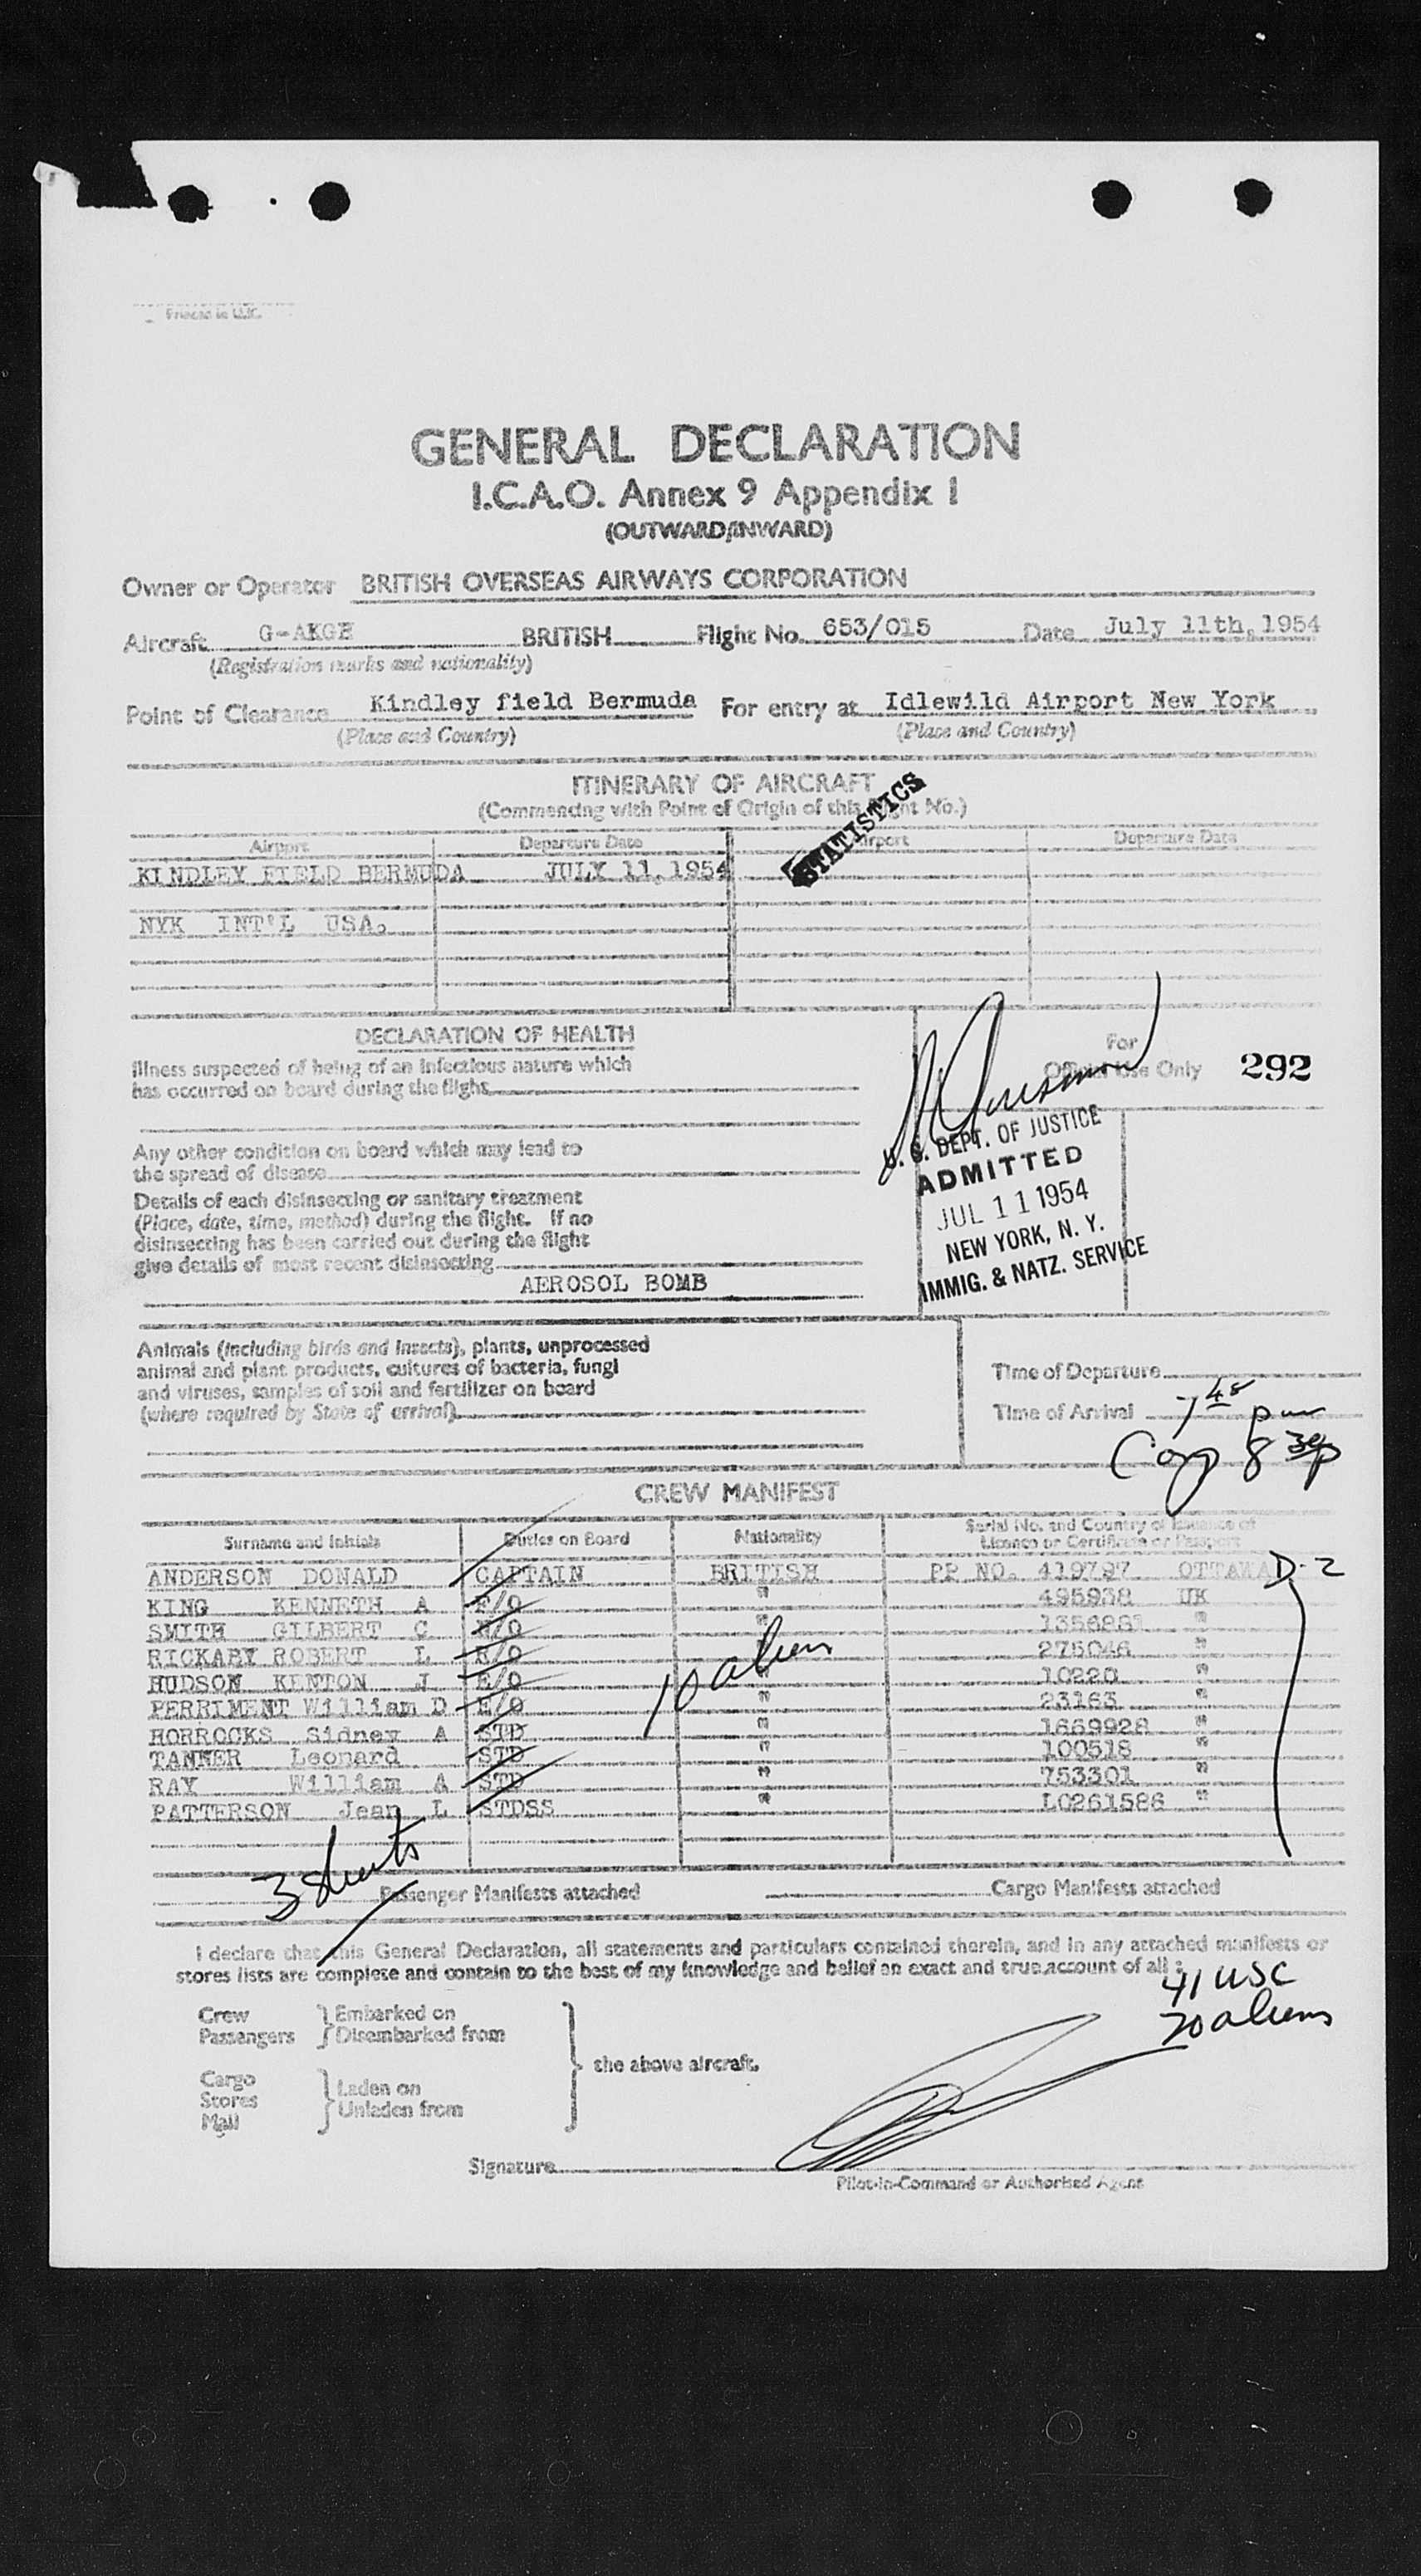 Printed in U.K.
GENERAL DECLARATION
I.C.A.O. Annex 9 Appendix I
(OUTWARD/INWARD)
Owner or Operator BRITISH OVERSEAS AIRWAYS CORPORATION
Aircraft G-AKGH BRITISH Flight No. 653/015 Date July 11th, 1954
(Registration marks and nationality)
Point of Clearance Kindley field Bermuda For entry at Idlewild Airport New York
(Place and Country) (Place and Country)
ITINERARY OF AIRCRAFT
(Commencing with Point of Origin of this Flight No.)
STATISTICS
Airport Departure Date Airport Departure Date
KINDLEY FIELD BERMUDA JULY 11, 1954
NYK INT'L USA.
DECLARATION OF HEALTH
For
Official Use Only 292
Illness suspected of being of an infectious nature which
has occurred on board during the flight
Any other condition on board which may lead to
the spread of disease
Details of each disinsecting or sanitary treatment
(Place, date, time, method) during the flight. If no
disinsecting has been carried out during the flight
give details of most recent disinsecting
AEROSOL BOMB
U. S. DEPT. OF JUSTICE
ADMITTED
JUL 11 1954
NEW YORK, N. Y.
IMMIG. & NATZ. SERVICE
Animals (including birds and insects), plants, unprocessed
animal and plant products, cultures of bacteria, fungi
and viruses, samples of soil and fertilizer on board
(where required by State of arrival)
Time of Departure
Time of Arrival 7 45 pm
8 30p
CREW MANIFEST
Surname and Initials Duties on Board Nationality Serial No. and Country of Issuance of
Licence or Certificate or Passport
ANDERSON DONALD CAPTAIN BRITISH PP NO. 419797 OTTAWA D-2
KING KENNETH A F/O " 495938 UK
SMITH GILBERT C N/O " 1356881 "
RICKABY ROBERT L R/O 275046 "
HUDSON KENTON J E/O " 10220 "
PERRIMENT William D E/O " 23163 "
HORROCKS Sidney A STD " 1669928 "
TANNER Leonard STD " 100518 "
RAY William A STD " 753301 "
PATTERSON Jean L STDSS " L0261586 "
10 aliens
3 sheets Passenger Manifests attached Cargo Manifests attached
I declare that this General Declaration, all statements and particulars contained therein, and in any attached manifests or
stores lists are complete and contain to the best of my knowledge and belief an exact and true account of all :
41 USC
20 aliens
Crew Embarked on
Passengers Disembarked from
the above aircraft.
Cargo
Stores Laden on
Mail Unladen from
Signature
Pilot-in-Command or Authorised Agent